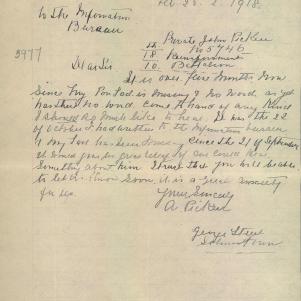 Feb 25. 2. 1918.
To the Information
Bureau
Private John Picker
No 5746
3977
18 Reinforcement
Dear Sir 10. Battalion
It is over five months now
Since my Son Pod is missing & No Word as yet
has there no word Come to hand of any kind
I should so much like to hear. It was the 22
of October I had written to the Information bureau
My Son has been Missing Since the 21 of September
it would give me great relief if one could hear
Something about him I trust that you will be able
to let me know Soon, it is a great anxiety
for me.
Yours Sincerely
A Picker
George Street